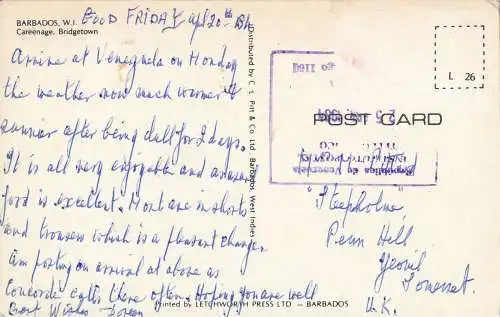 BARBADOS, W.I.
Careenage, Bridgetown
GOOD FRIDAY April 20th 1984
Arrive at Venezuela on Monday
the weather now much warmer &
sunnier after being dull for 2 days.
It is all very enjoyable and as usual
food is excellent. Most are in shorts
and trousers which is a pleasant change.
Am posting on arrival at above as
Concorde calls there often. Hoping you are well
Best Wishes Doreen
Distributed by C. L. Pitt & Co. Ltd. Barbados, West Indies
POST CARD
L 26
República de Venezuela
"Steepholme"
Penn Hill
Yeovil
Somerset.
U.K.
Printed by LETCHWORTH PRESS LTD — BARBADOS